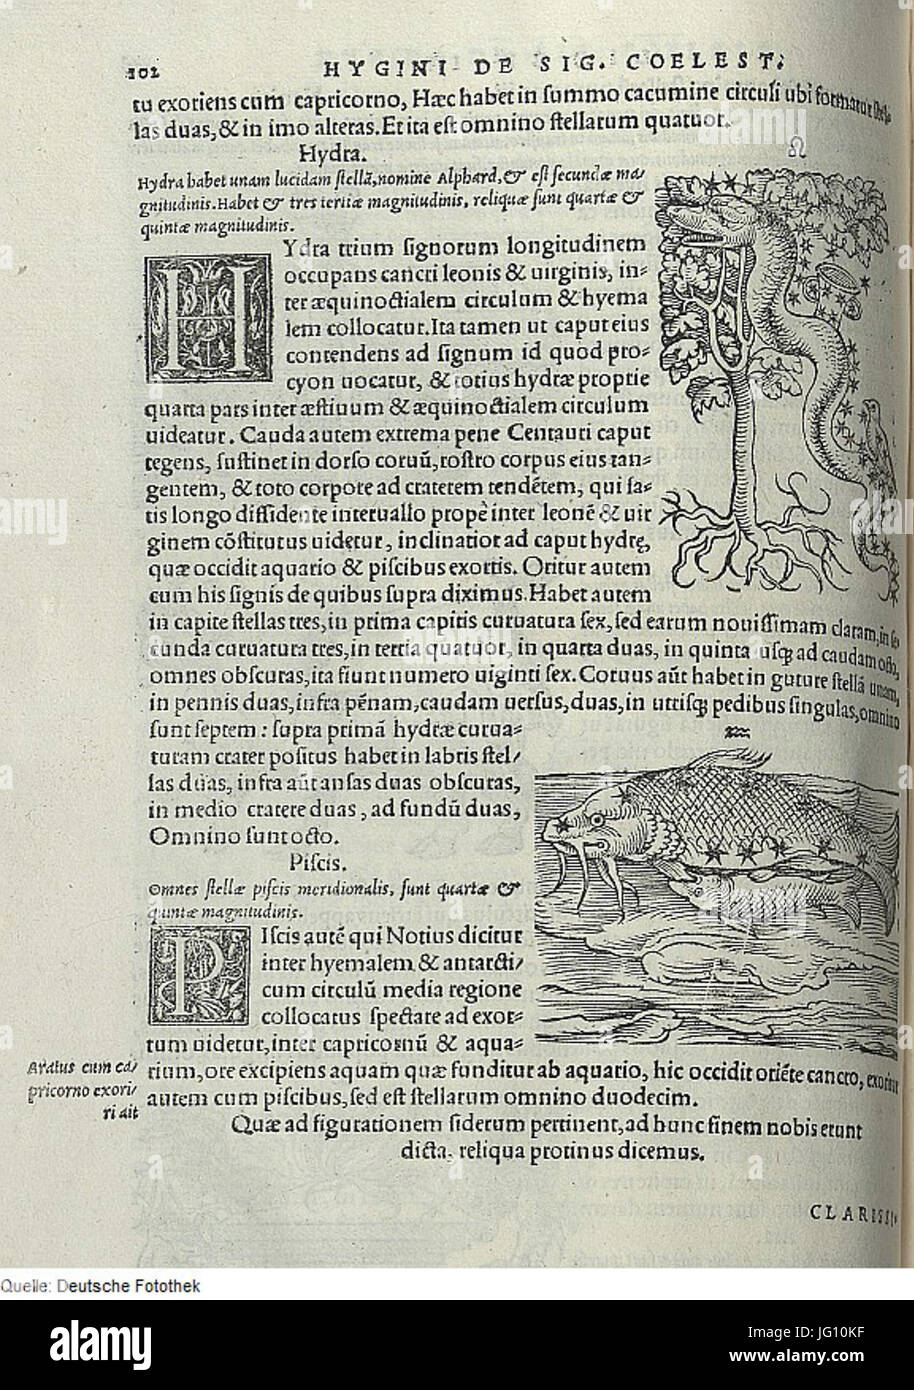 102 HYGINI DE SIG. COELEST.
tu exoriens cum capricorno, Hæc habet in summo cacumine circuli ubi formatur stel-
las duas, & in imo alteras. Et ita est omnino stellarum quatuor.
Hydra.
Hydra habet unam lucidam stellã, nomine Alphard, & est secundæ ma/
gnitudinis. Habet & tres tertiæ magnitudinis, reliquæ sunt quartæ &
quintæ magnitudinis.
HYdra trium signorum longitudinem
occupans cancri leonis & uirginis, in-
ter æquinoctialem circulum & hyema
lem collocatur. Ita tamen ut caput eius
contendens ad signum id quod pro-
cyon uocatur, & totius hydræ proprie
quarta pars inter æstiuum & æquinoctialem circulum
uideatur. Cauda autem extrema pene Centauri caput
tegens, sustinet in dorso coruũ, rostro corpus eius tan-
gentem, & toto corpore ad craterem tendẽtem, qui sa-
tis longo dissidente interuallo propè inter leonẽ & uir
ginem cõstitutus uidetur, inclinatior ad caput hydrę,
quæ occidit aquario & piscibus exortis. Oritur autem
cum his signis de quibus supra diximus. Habet autem
in capite stellas tres, in prima capitis curuatura sex, sed earum nouissimam claram, in se
cunda curuatura tres, in tertia quatuor, in quarta duas, in quinta usq; ad caudam octo,
omnes obscuras, ita fiunt numero uiginti sex. Coruus aũt habet in guture stellã unam,
in pennis duas, infra pẽnam, caudam uersus, duas, in utrisq; pedibus singulas, omnino
sunt septem: supra primã hydræ curua-
turam crater positus habet in labris stel/
las duas, infra aũt ansas duas obscuras,
in medio cratere duas, ad fundũ duas,
Omnino sunt octo.
Piscis.
Omnes stellæ piscis meridionalis, sunt quartæ &
quintæ magnitudinis.
PIscis autẽ qui Notius dicitur
inter hyemalem & antarcti/
cum circulũ media regione
collocatus spectare ad exor-
tum uidetur, inter capricornũ & aqua-
Aratus cum ca/
pricorno exori/
ri ait
rium, ore excipiens aquam quæ funditur ab aquario, hic occidit oriẽte cancro, exoritur
autem cum piscibus, sed est stellarum omnino duodecim.
Quæ ad figurationem siderum pertinent, ad hunc finem nobis erunt
dicta, reliqua protinus dicemus.
CLARISSI
Quelle: Deutsche Fotothek
alamy
Image ID: JG10KF
www.alamy.com